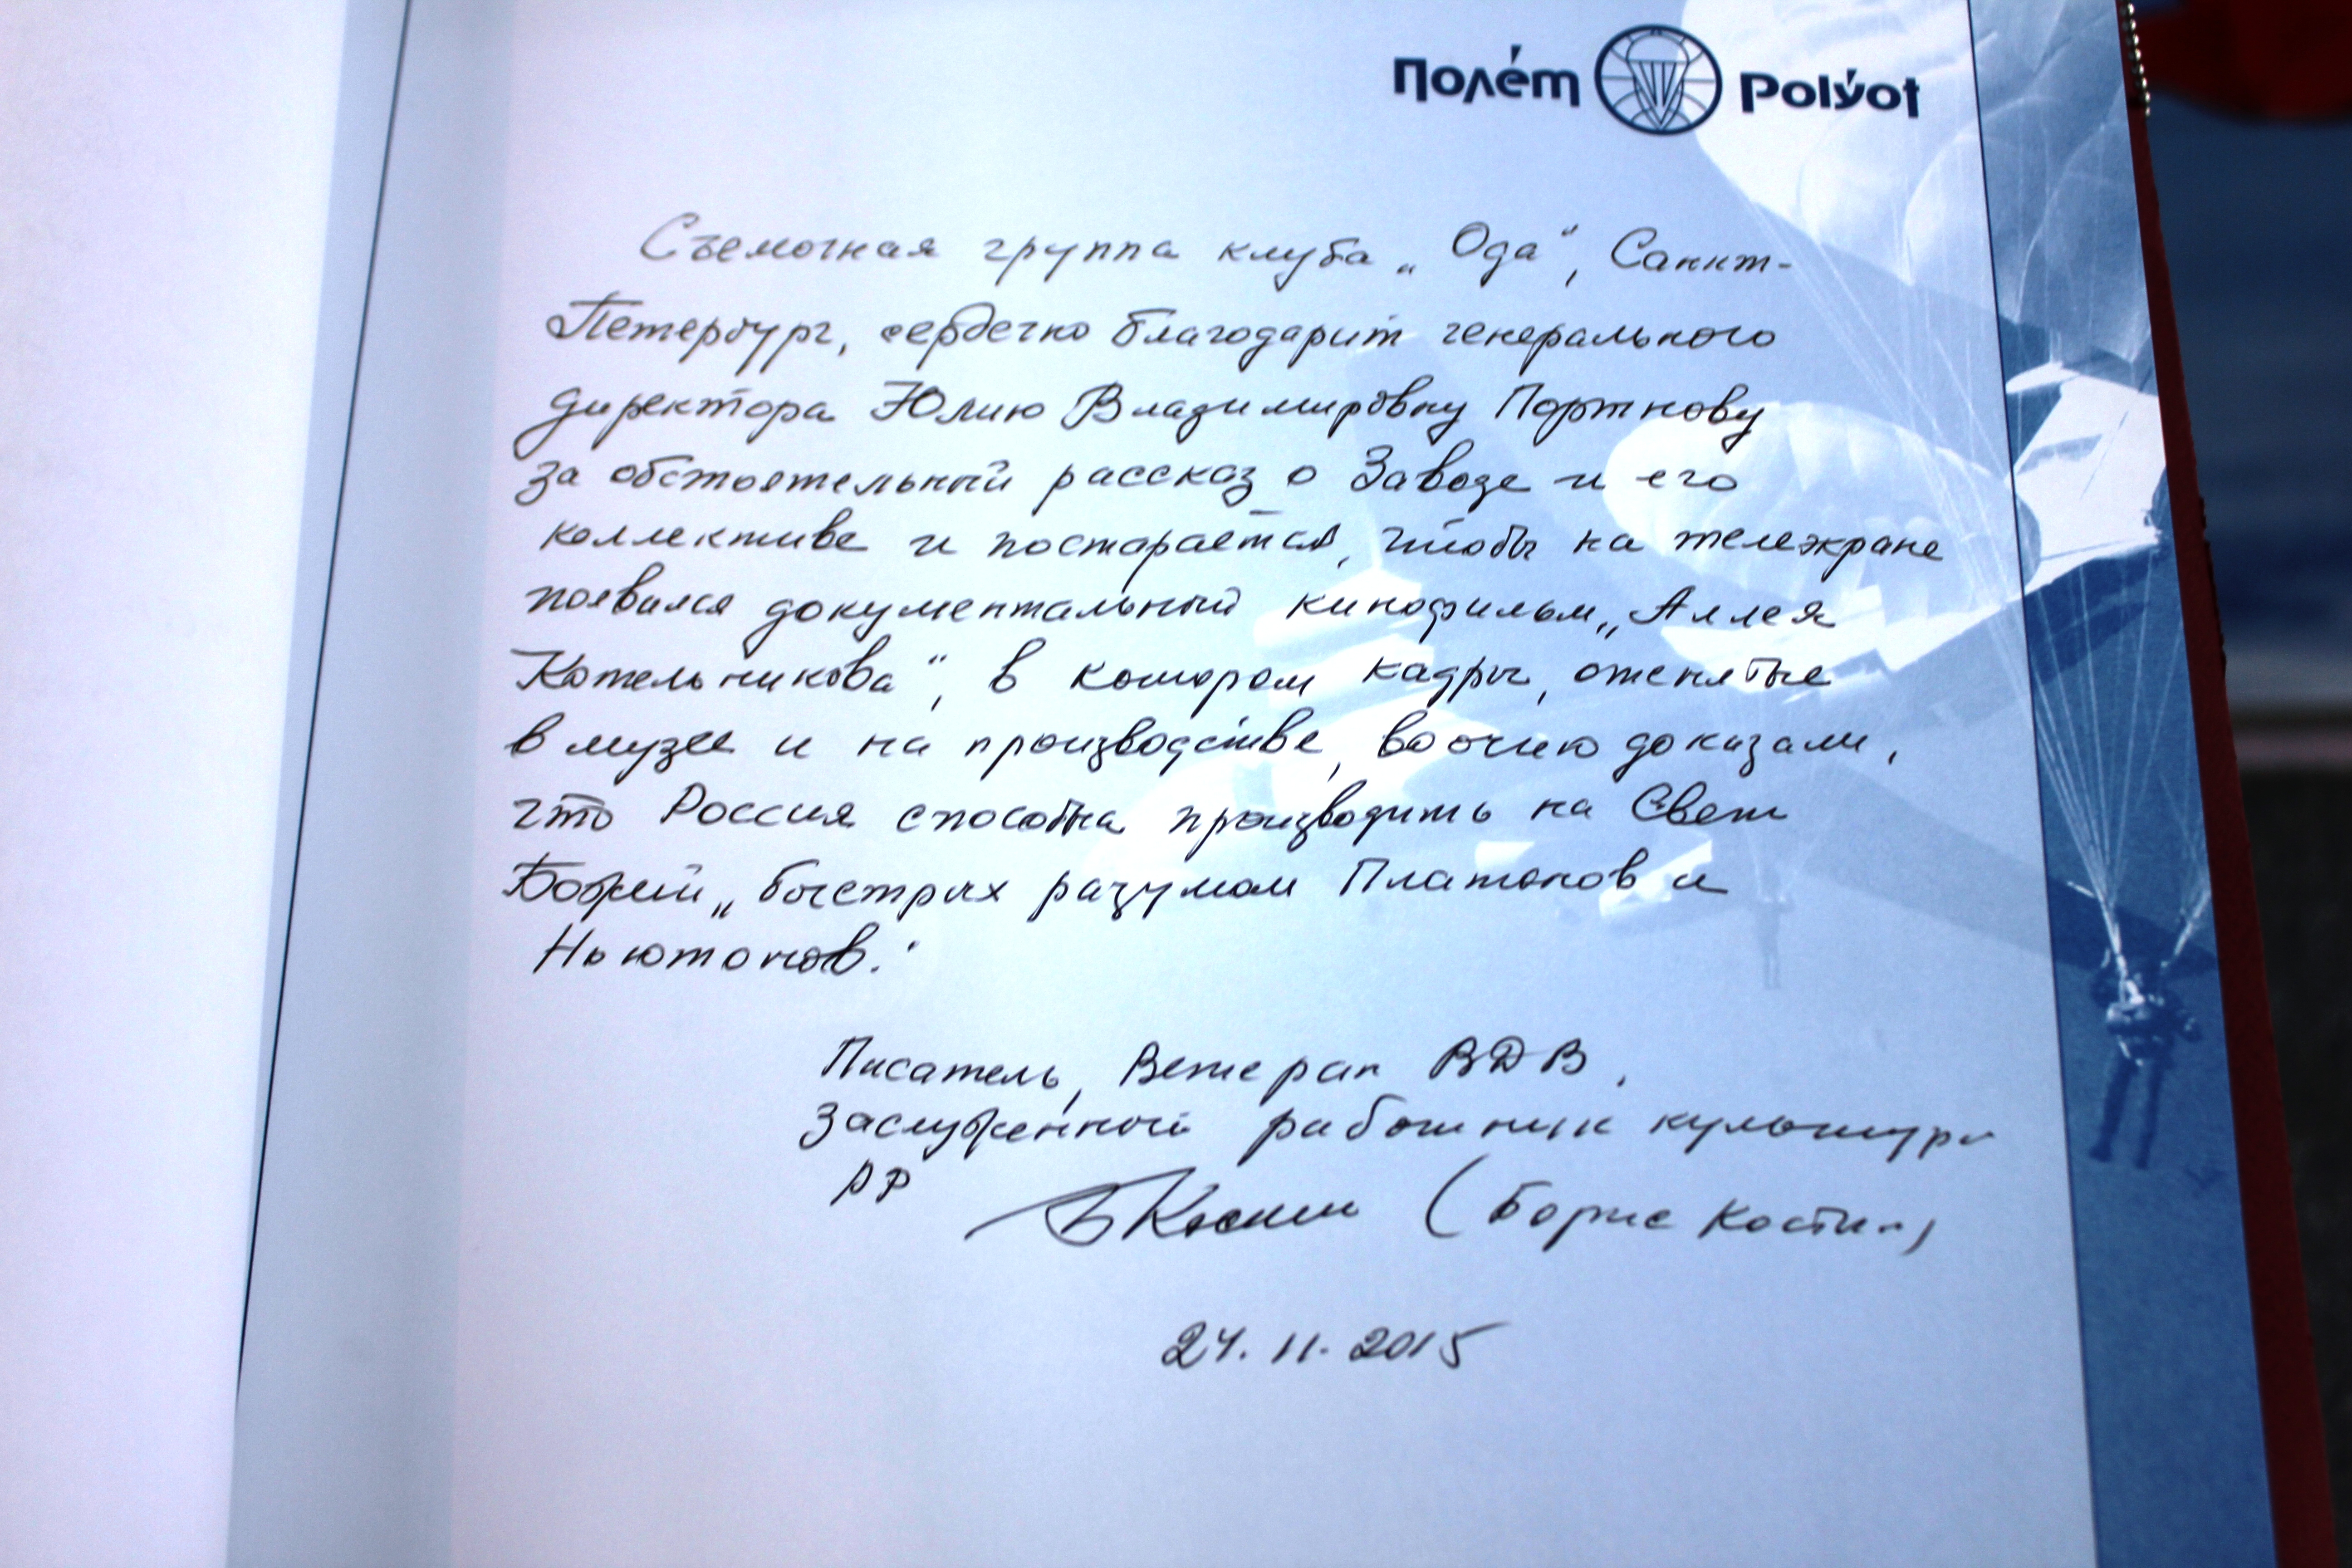 Полёт Polyot
Съемочная группа клуба „Ода“, Санкт-
Петербург, сердечно благодарит генерального
директора Юлию Владимировну Портнову
за обстоятельный рассказ о Заводе и его
коллективе и постарается, чтобы на телеэкране
появился документальный кинофильм „Аллея
Котельникова“, в котором кадры, отснятые
в музее и на производстве, воочию доказали,
что Россия способна производить на Свет
Божий „быстрых разумом Платонов и
Ньютонов.“
Писатель, Ветеран ВДВ,
Заслуженный работник культуры
РФ БКостин (Борис Костин)
24.11.2015